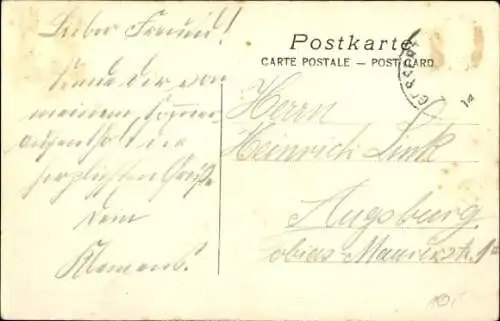 Lieber Freund!
Sende dir von
meinem Sommer-
aufenthalt die
herzlichsten Grüße
Dein
Klemens.
Postkarte
CARTE POSTALE — POST CARD
Herrn
Heinrich Link
Augsburg.
Tobias Maurerstr.